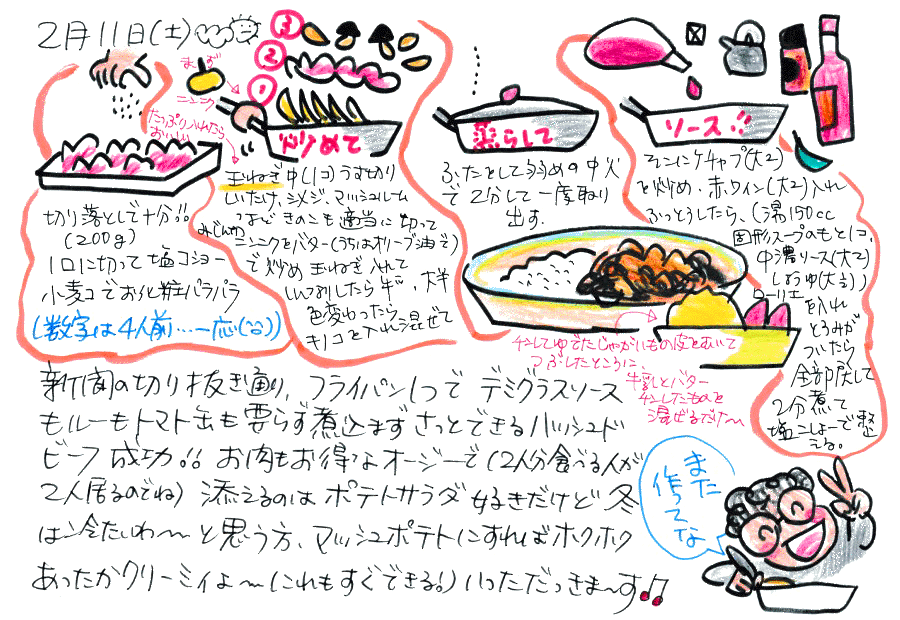 2月11日(土)
③
②
①
ニンニク
たっぷり入れたら
おいしい
炒めて
蒸らして
ソース!!
切り落としで十分!!
(200g)
1口に切って塩コショー
小麦コでお化粧パラパラ
(数字は4人前…一応(^^;))
玉ねぎ中(1コ)うす切り
しいたけ、シメジ、マッシュルーム
などきのこも適当に切って
みじん切り
ニンニクをバター(うちはオリーブ油で)
で炒め玉ねぎ入れて
しんなりしたら牛、
色変わったら
キノコを入れ混ぜて
ふたをして弱めの中火
で2分して一度取り
出す。
ケチャップ(大2)
を炒め、赤ワイン(大2)入れ
ふっとうしたら、(湯150cc
固形スープのもと1コ、
中濃ソース(大2)
しょうゆ(大
ローリエ
を入れ
とろみが
ついたら
全部戻して
2分煮て
塩こしょーで整
える。
チンしてゆでたじゃがいもの皮をむいて
つぶしたところに、
牛乳とバター
チンしたものを
混ぜるだけ〜
新聞の切り抜き通り、フライパン1つで デミグラスソース
もルーもトマト缶も要らず煮込まず さっとできるハッシュド
ビーフ成功!! お肉もお得なオージーで(2人分食べる人が
2人居るのでね) 添えるのは ポテトサラダ好きだけど 冬
は冷たいわ〜 と思う方、マッシュポテトにすればホクホク
あったかクリーミィよ〜(これもすぐできる!) いっただっきま〜す♫
また
作ってな